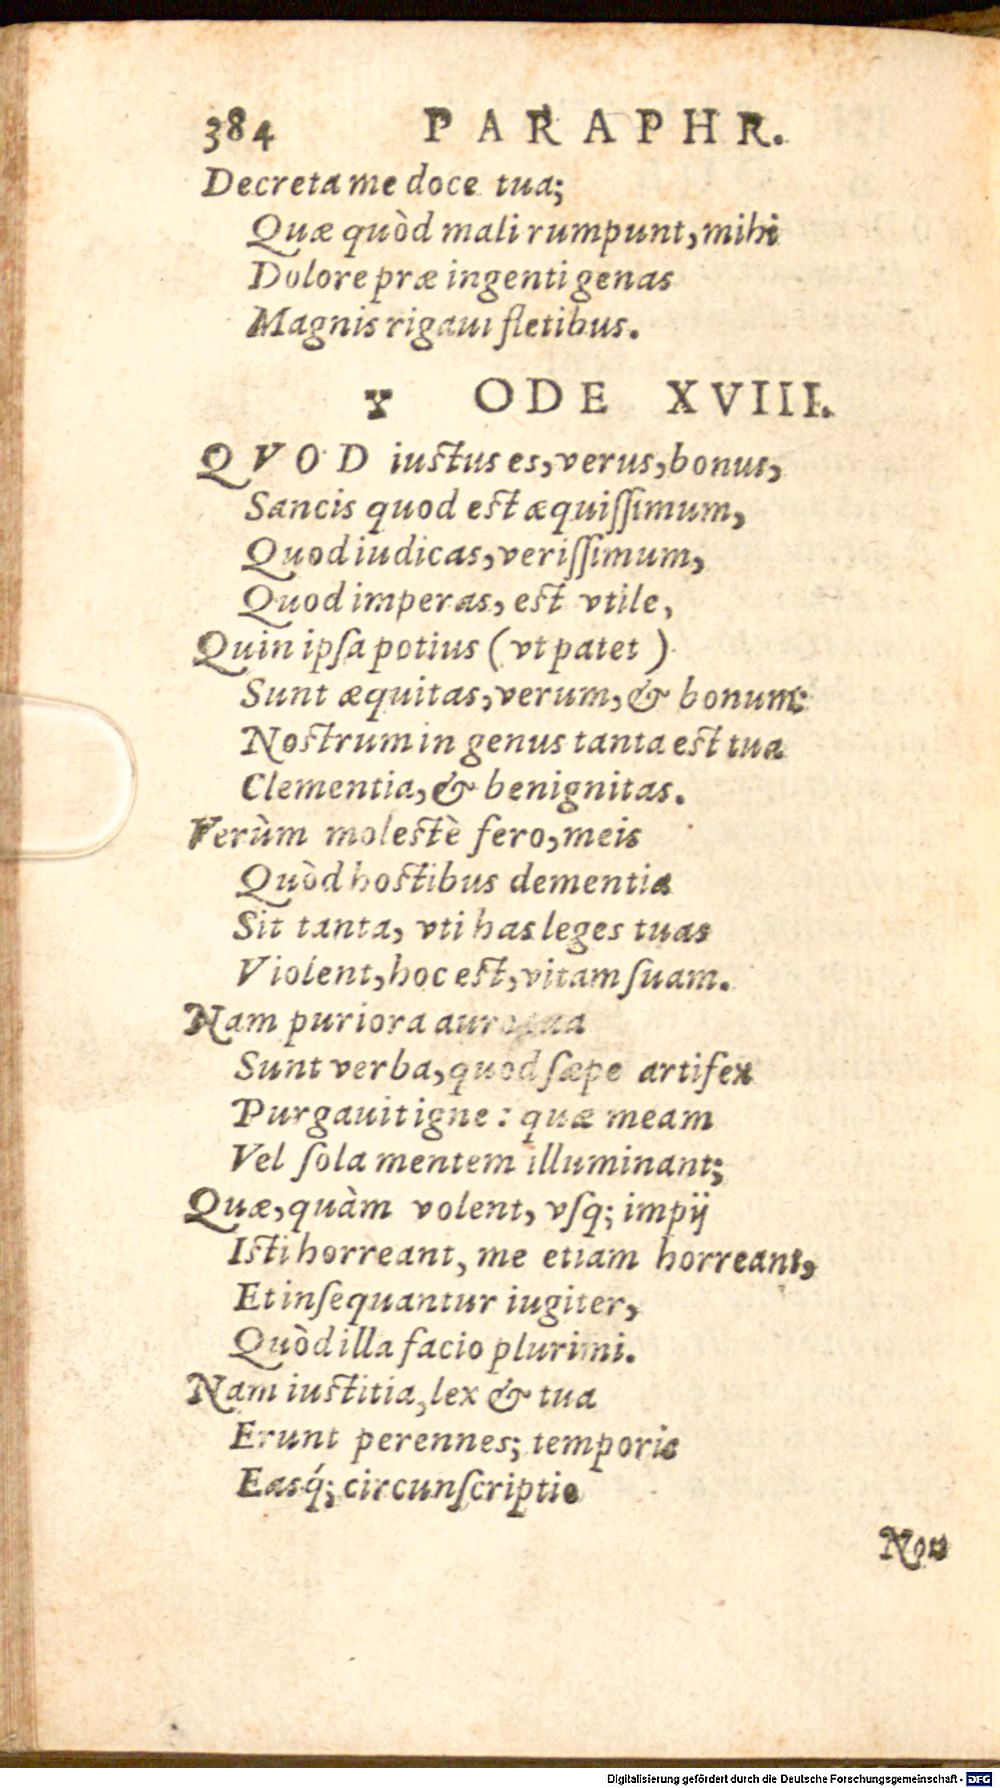 384 PARAPHR.
Decreta me doce tua;
Quæ quòd mali rumpunt, mihi
Dolore præ ingenti genas
Magnis rigaui fletibus.
צ ODE XVIII.
QVOD iustus es, verus, bonus,
Sancis quod est æquiſſimum,
Quod iudicas, veriſſimum,
Quod imperas, est vtile,
Quin ipſa potius (vt patet)
Sunt æquitas, verum, & bonum:
Nostrum in genus tanta est tua
Clementia, & benignitas.
Verùm molestè fero, meis
Quòd hostibus dementia
Sit tanta, vti has leges tuas
Violent, hoc est, vitam ſuam.
Nam puriora auro tua
Sunt verba, quod ſæpe artifex
Purgauit igne: quæ meam
Vel ſola mentem illuminant;
Quæ, quàm volent, vſq; impij
Isti horreant, me etiam horreant,
Et inſequantur iugiter,
Quòd illa facio plurimi.
Nam iustitia, lex & tua
Erunt perennes; temporis
Easq́; circunſcriptio
Non
Digitalisierung gefördert durch die Deutsche Forschungsgemeinschaft - DFG